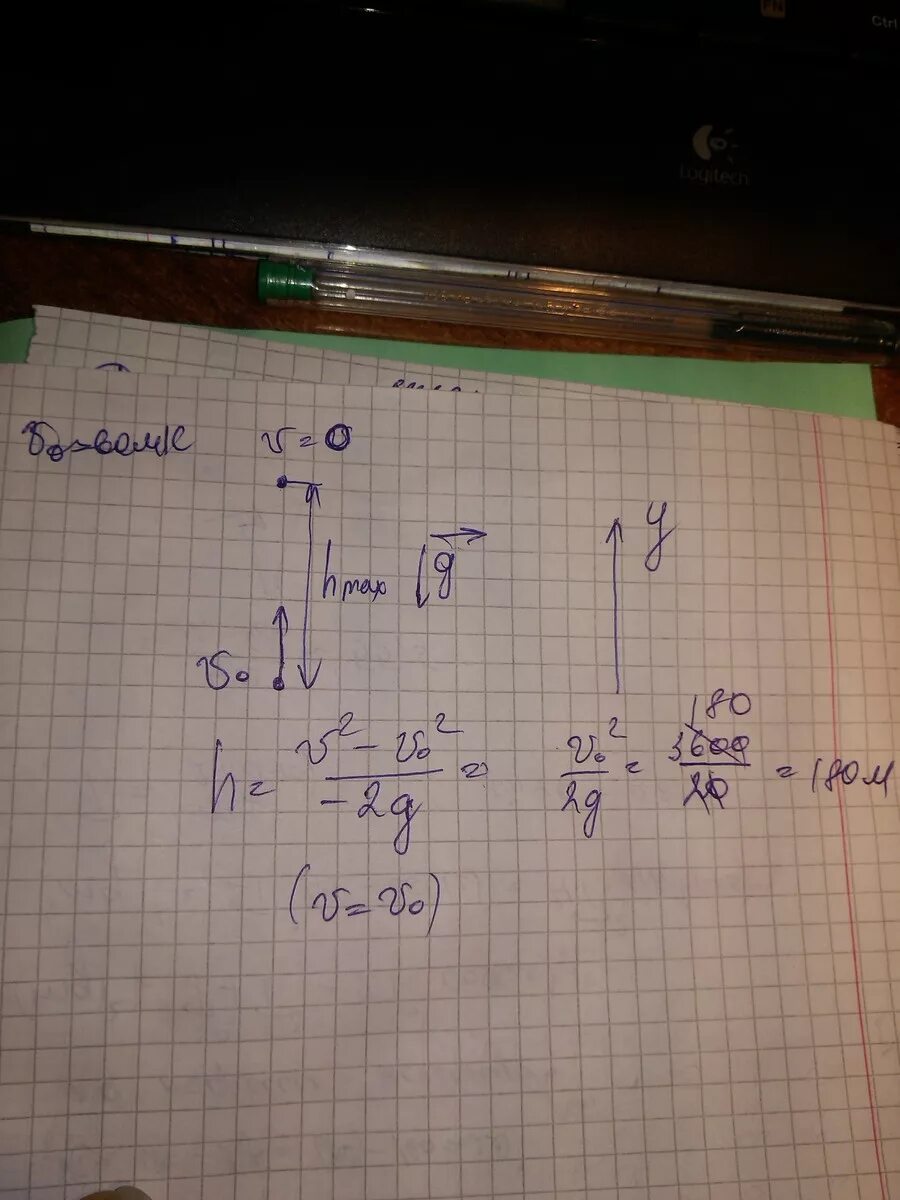 FN
Ctrl
Logitech
v₀=60м/с v = 0
h max g⃗ y
v₀
h = (v² - v₀²)/(-2g) = v₀²/2g = 3600/20 = 180м
180
(v = v₀)